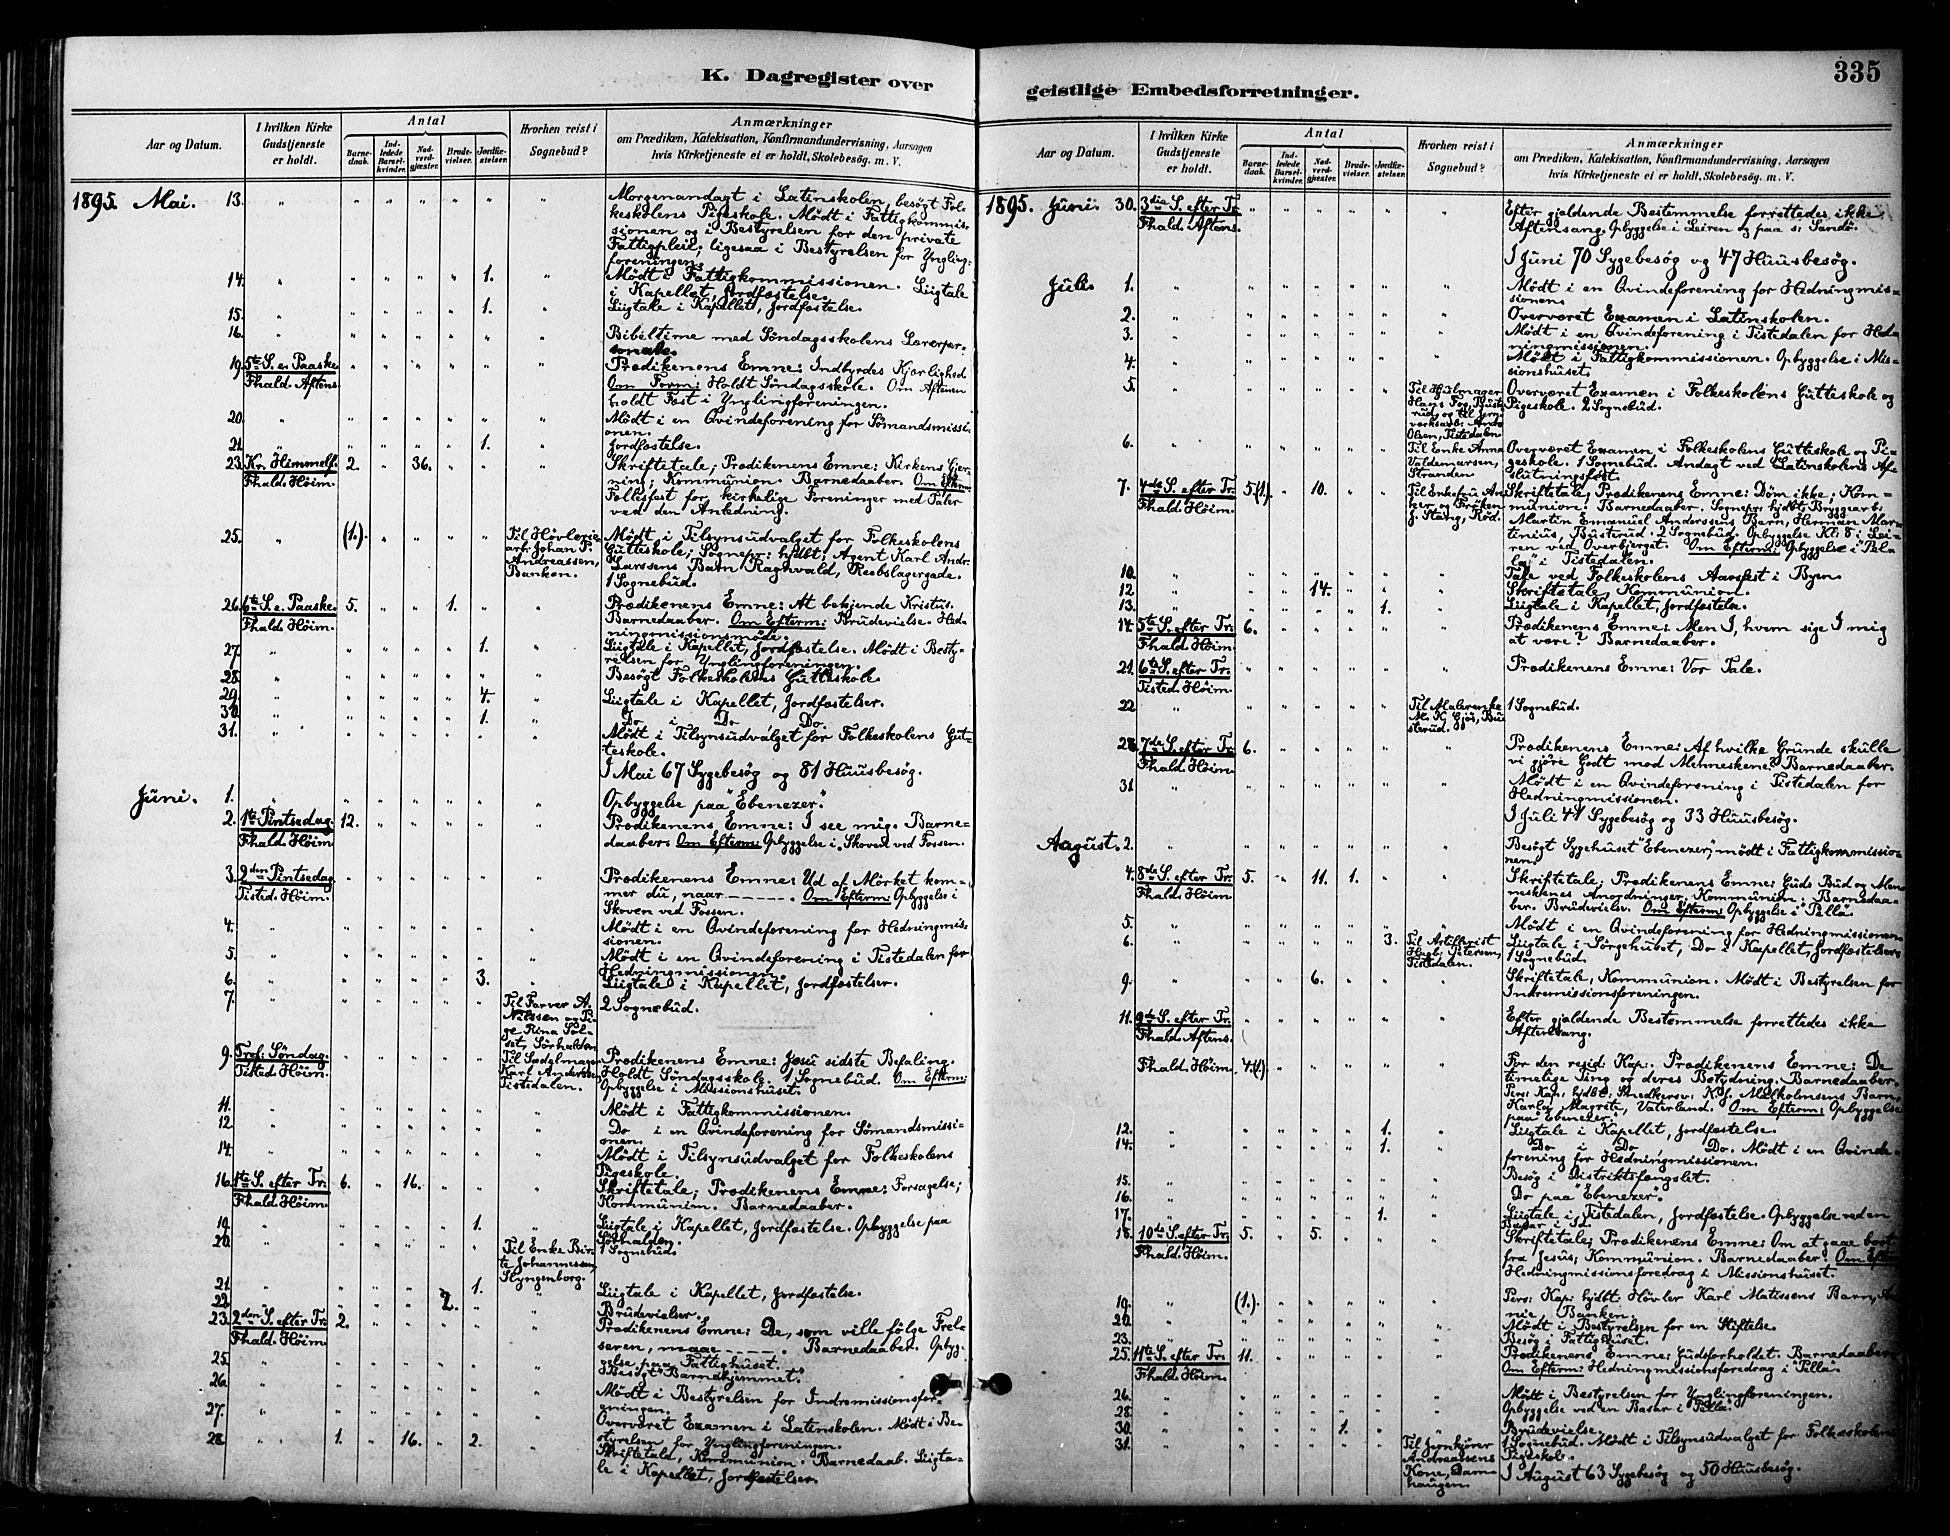 K. Dagregister over
Aar og Datum.
I hvilken Kirke Gudstjeneste er holdt.
Antal
Barnedaab.
Indledede Barselkvinder.
Nadverdgjæster.
Brudevielser.
Jordfæstelser.
Hvorhen reist i Sognebud?
Anmærkninger
om Prædiken, Katekisation, Konfirmandundervisning, Aarsagen
hvis Kirketjeneste ei er holdt, Skolebesøg. m. V.
1895. Mai. 13. Morgenandagt i Latinskolen, besøgt Fol-
keskolens Pigeskole. Mødt i Fattigkommis-
sionen og i Bestyrelsen for den private
Fattigpleie, ligesaa i Bestyrelsen for Yngling-
foreningen.
14. 1. Mødt i Fattigkommissionen. Liigtale
i Kapellet, Jordfæstelse.
15. 1. Liigtale i Kapellet, Jordfæstelse.
16. Bibeltime med Søndagsskolens Lærerper-
sonale.
19. 5te S. e. Paaske Prædikenens Emne: Indbyrdes Kjærlighed
Fhald. Aftens. Om Form: Holdt Søndagsskole. Om Aftenen
holdt Fest i Ynglingforeningen.
20. Mødt i en Qvindeforening for Sømandsmissi-
onen.
21. 1. Jordfæstelse.
23. Kr. Himmelf. 2. 36. Skriftetale; Prædikenens Emne: Kirkens Gjer-
Fhald. Høim. ning; Kommunion. Barnedaaber. Om Efterm:
Fællesfest for kirkelige Foreninger med Taler
ved den Anledning.
25. (1.) Til Høvlerie- Mødt i Tilsynsudvalget for Folkeskolens
arb. Johan P. Gutteskole; Sognepr: hjdbt: Agent Karl Andr.
Andreassen, Larssens Barn Ragnvald, Rebslagergade.
Banken. 1 Sognebud.
26. 6te S. e. Paaske 5. 1. Prædikenens Emne: At bekjende Kristus.
Fhald. Høim. Barnedaaber. Om Efterm: Brudevielse. Hed-
ningmissionsmøde.
27. 1. Liigtale i Kapellet, Jordfæstelse. Mødt i Besty-
relsen for Ynglingforeningen.
28. Besøgt Folkeskolens Gutteskole.
29. 4. Liigtale i Kapellet, Jordfæstelser.
30. 1. Do i Do Do.
31. Mødt i Tilsynsudvalget for Folkeskolens Gut-
teskole.
I Mai 67 Sygebesøg og 81 Huusbesøg.
Juni. 1. Opbyggelse paa "Ebenezer".
2. 1te Pintsedag. 12. Prædikenens Emne: I see mig. Barne-
Fhald. Høim. daaber. Om Efterm: Opbyggelse i Skoven ved Fossen.
3. 2den Pintsedag Prædikenens Emne: Ud af Mørket kom-
Tisted. Høim. mer du, naar ———. Om Efterm: Opbyggelse i
Skoven ved Fossen.
4. Mødt i en Qvindeforening for Hedningmis-
sionen.
5. Mødt i en Qvindeforening i Tistedalen for
Hedningmissionen.
6. 3. Liigtale i Kapellet, Jordfæstelser.
7. Til Farver A. 2 Sognebud.
Nilssen og Pi-
ge Rina Søl-
set, Sørhalden.
9. Tref: Søndag. Til Sadelmager Prædikenens Emne: Jesu sidste Befaling.
Tisted. Høim. Karl Andersen Holdt Søndagsskole. 1 Sognebud. Om Efterm:
Tistedalen. Opbyggelse i Missionshuset.
11. Mødt i Fattigkommissionen.
12. Do i en Qvindeforening for Sømandsmissi-
onen.
14. Mødt i Tilsynsudvalget for Folkeskolens
Pigeskole.
16. 1te S. efter Tr: 6. 16. Skriftetale; Prædikenens Emne: Forsagelse;
Fhald. Høim. Kommunion. Barnedaaber.
19. 1. Liigtale i Kapellet, Jordfæstelse. Opbyggelse paa
Sørhalden.
20. Til Enke Bir- 1 Sognebud.
te Johannessen,
Slyngenborg.
21. 1. Liigtale i Kapellet, Jordfæstelse.
22. 2. Brudevielser.
23. 2den S. efter Tr: 2. Prædikenens Emne: De, som ville følge Frel-
Fhald. Høim. seren, maae ———. Barnedaaber. Opbyg-
gelse paa Fattighuset.
25. Besøgt "Barnehjemmet".
26. Mødt i Bestyrelsen for Indremissionsfor-
eningen.
27. Overværet Examen i Latinskolen. Mødt i Be-
styrelsen for Ynglingforeningen.
28. 1. 16. 2. Skriftetale, Kommunion. Barnedaab. Liigta-
le i Kapellet, Jordfæstelser.
335
geistlige Embedsforretninger.
Aar og Datum.
I hvilken Kirke Gudstjeneste er holdt.
Antal
Barnedaab.
Indledede Barselkvinder.
Nadverdgjæster.
Brudevielser.
Jordfæstelser.
Hvorhen reist i Sognebud?
Anmærkninger
om Prædiken, Katekisation, Konfirmandundervisning, Aarsagen
hvis Kirketjeneste ei er holdt, Skolebesøg. m. V.
1895. Juni. 30. 3die S. efter Tr. Efter gjældende Bestemmelse forrettedes ikke
Fhald. Aftens. Aftensang. Opbyggelse i Leiren og paa s: Sandø.
I Juni 70 Sygebesøg og 47 Huusbesøg.
Juli. 1. Mødt i en Qvindeforening for Hedningmis-
sionen.
2. Overværet Examen i Latinskolen.
3. Mødt i en Qvindeforening i Tistedalen for Hed-
ningmissionen.
4. Mødt i Fattigkommissionen. Opbyggelse i Mis-
sionshuset.
5. Til Hjulmager Overværet Examen i Folkeskolens Gutteskole og
Hans Fog, Bust- Pigeskole. 2 Sognebud.
rud, og til Jern-
verksarb: Anders
Olsen, Tistedalen
6. Til Enke Anna Overværet Examen i Folkeskolens Gutteskole og Pi-
Valdemarsen, geskole. 1 Sognebud. Andagt ved Latinskolens Af-
Stranden slutningsfest.
7. 4de S. efter Tr: 5(1). 10. Til Enkefru An- Skriftetale; Prædikenens Emne: Døm ikke; Kom-
Fhald. Høim. ker og Frøken munion. Barnedaaber. Sognepr: hjdbt: Bryggearb:
J. Stang, Rød. Martin Emanuel Anderssens Barn, Herman Mar-
tinius, Busterud. 2 Sognebud. Opbyggelse Kl: 8 i Lei-
ren ved Overbjerget. Om Efterm: Opbyggelse i "Pel-
la" i Tistedalen.
10. Tale ved Folkeskolens Aarsfest i Byen.
12. 14. Skriftetale, Kommunion.
13. 1. Liigtale i Kapellet, Jordfæstelse.
14. 5te S. efter Tr: 6. Prædikenens Emne: Men I, hvem sige I mig
Fhald. Høim. at være? Barnedaaber.
21. 6te S. efter Tr: Prædikenens Emne: Vor Tale.
Tisted. Høim.
22. Til Malerenke 1 Sognebud.
M. K. Gjøs, Bu-
sterud.
28. 7de S. efter Tr: 6. Prædikenens Emne: Af hvilke Grunde skulle
Fhald. Høim. vi gjøre Godt mod Menneskene? Barnedaaber.
31. Mødt i en Qvindeforening i Tistedalen for
Hedningmissionen.
I Juli 41 Sygebesøg og 33 Huusbesøg.
August. 2. Besøgt Sygehuset "Ebenezer", mødt i Fattigkommissio-
nen.
4. 8de S. efter Tr: 5. 11. 1. Skriftetale; Prædikenens Emne: Guds Bud og Men-
Fhald. Høim. neskenes Anordninger; Kommunion. Barnedaa-
ber. Brudevielse. Om Efterm: Opbyggelse i "Pella".
5. Mødt i en Qvindeforening for Hedningmissionen.
6. 3. Til Artillerist Liigtale i Sørgehuset, Do i Kapellet, Jordfæstelser.
Petersen, 1 Sognebud.
Tistedalen.
9. 6. Skriftetale, Kommunion. Mødt i Bestyrelsen for
Indremissionsforeningen.
11. 9de S. efter Tr. Efter gjældende Bestemmelse forrettedes ikke
Fhald. Aftens. Aftensang.
Fhald. Høim. 4.(1.) For den resid: Kap: Prædikenens Emne: De
timelige Ting og deres Betydning. Barnedaaber.
Pers: Kap: hjdbt: Snedkersv: K. J. Melholmsens Barn,
Karla Magrete, Vaterland. Om Efterm: Opbyggelse
paa "Ebenezer".
12. 1. Liigtale i Kapellet, Jordfæstelse.
14. 1. Do i Do Do. Mødt i en Qvinde-
forening for Hedningmissionen.
15. Besøg i Distriktsfængslet.
16. Do paa "Ebenezer".
17. 1. Liigtale i Tistedalen, Jordfæstelse. Opbyggelse ved en
Basar i Sd.
18. 10de S. efter Tr: 5. 5. Skriftetale; Prædikenens Emne: Om at gaae bort
Fhald. Høim. fra Jesus; Kommunion. Barnedaaber. Om Efterm:
Hedningmissionsforedrag i Missionshuset.
19. (1.) Pers: Kap: hjdbt Høvler Karl Matissens Barn, An-
nie, Banken.
20. Mødt i Bestyrelsen for en Stiftelse.
23. Besøg i Fattighuset.
25. 11te S. efter Tr: 11. Prædikenens Emne: Gudsforholdet. Barnedaaber.
Fhald. Høim. Om Efterm: Hedningmissionsforedrag i "Pella".
26. Mødt i Bestyrelsen for Ynglingforeningen.
28. Opbyggelse ved en Basar i "Pella".
30. 1. Brudevielse.
31. Til Jernkjører 1 Sognebud. Mødt i Tilsynsudvalget for Folkeskolens
Andreassens Pigeskole.
Kone, Dam- I August 63 Sygebesøg og 50 Huusbesøg.
haugen.